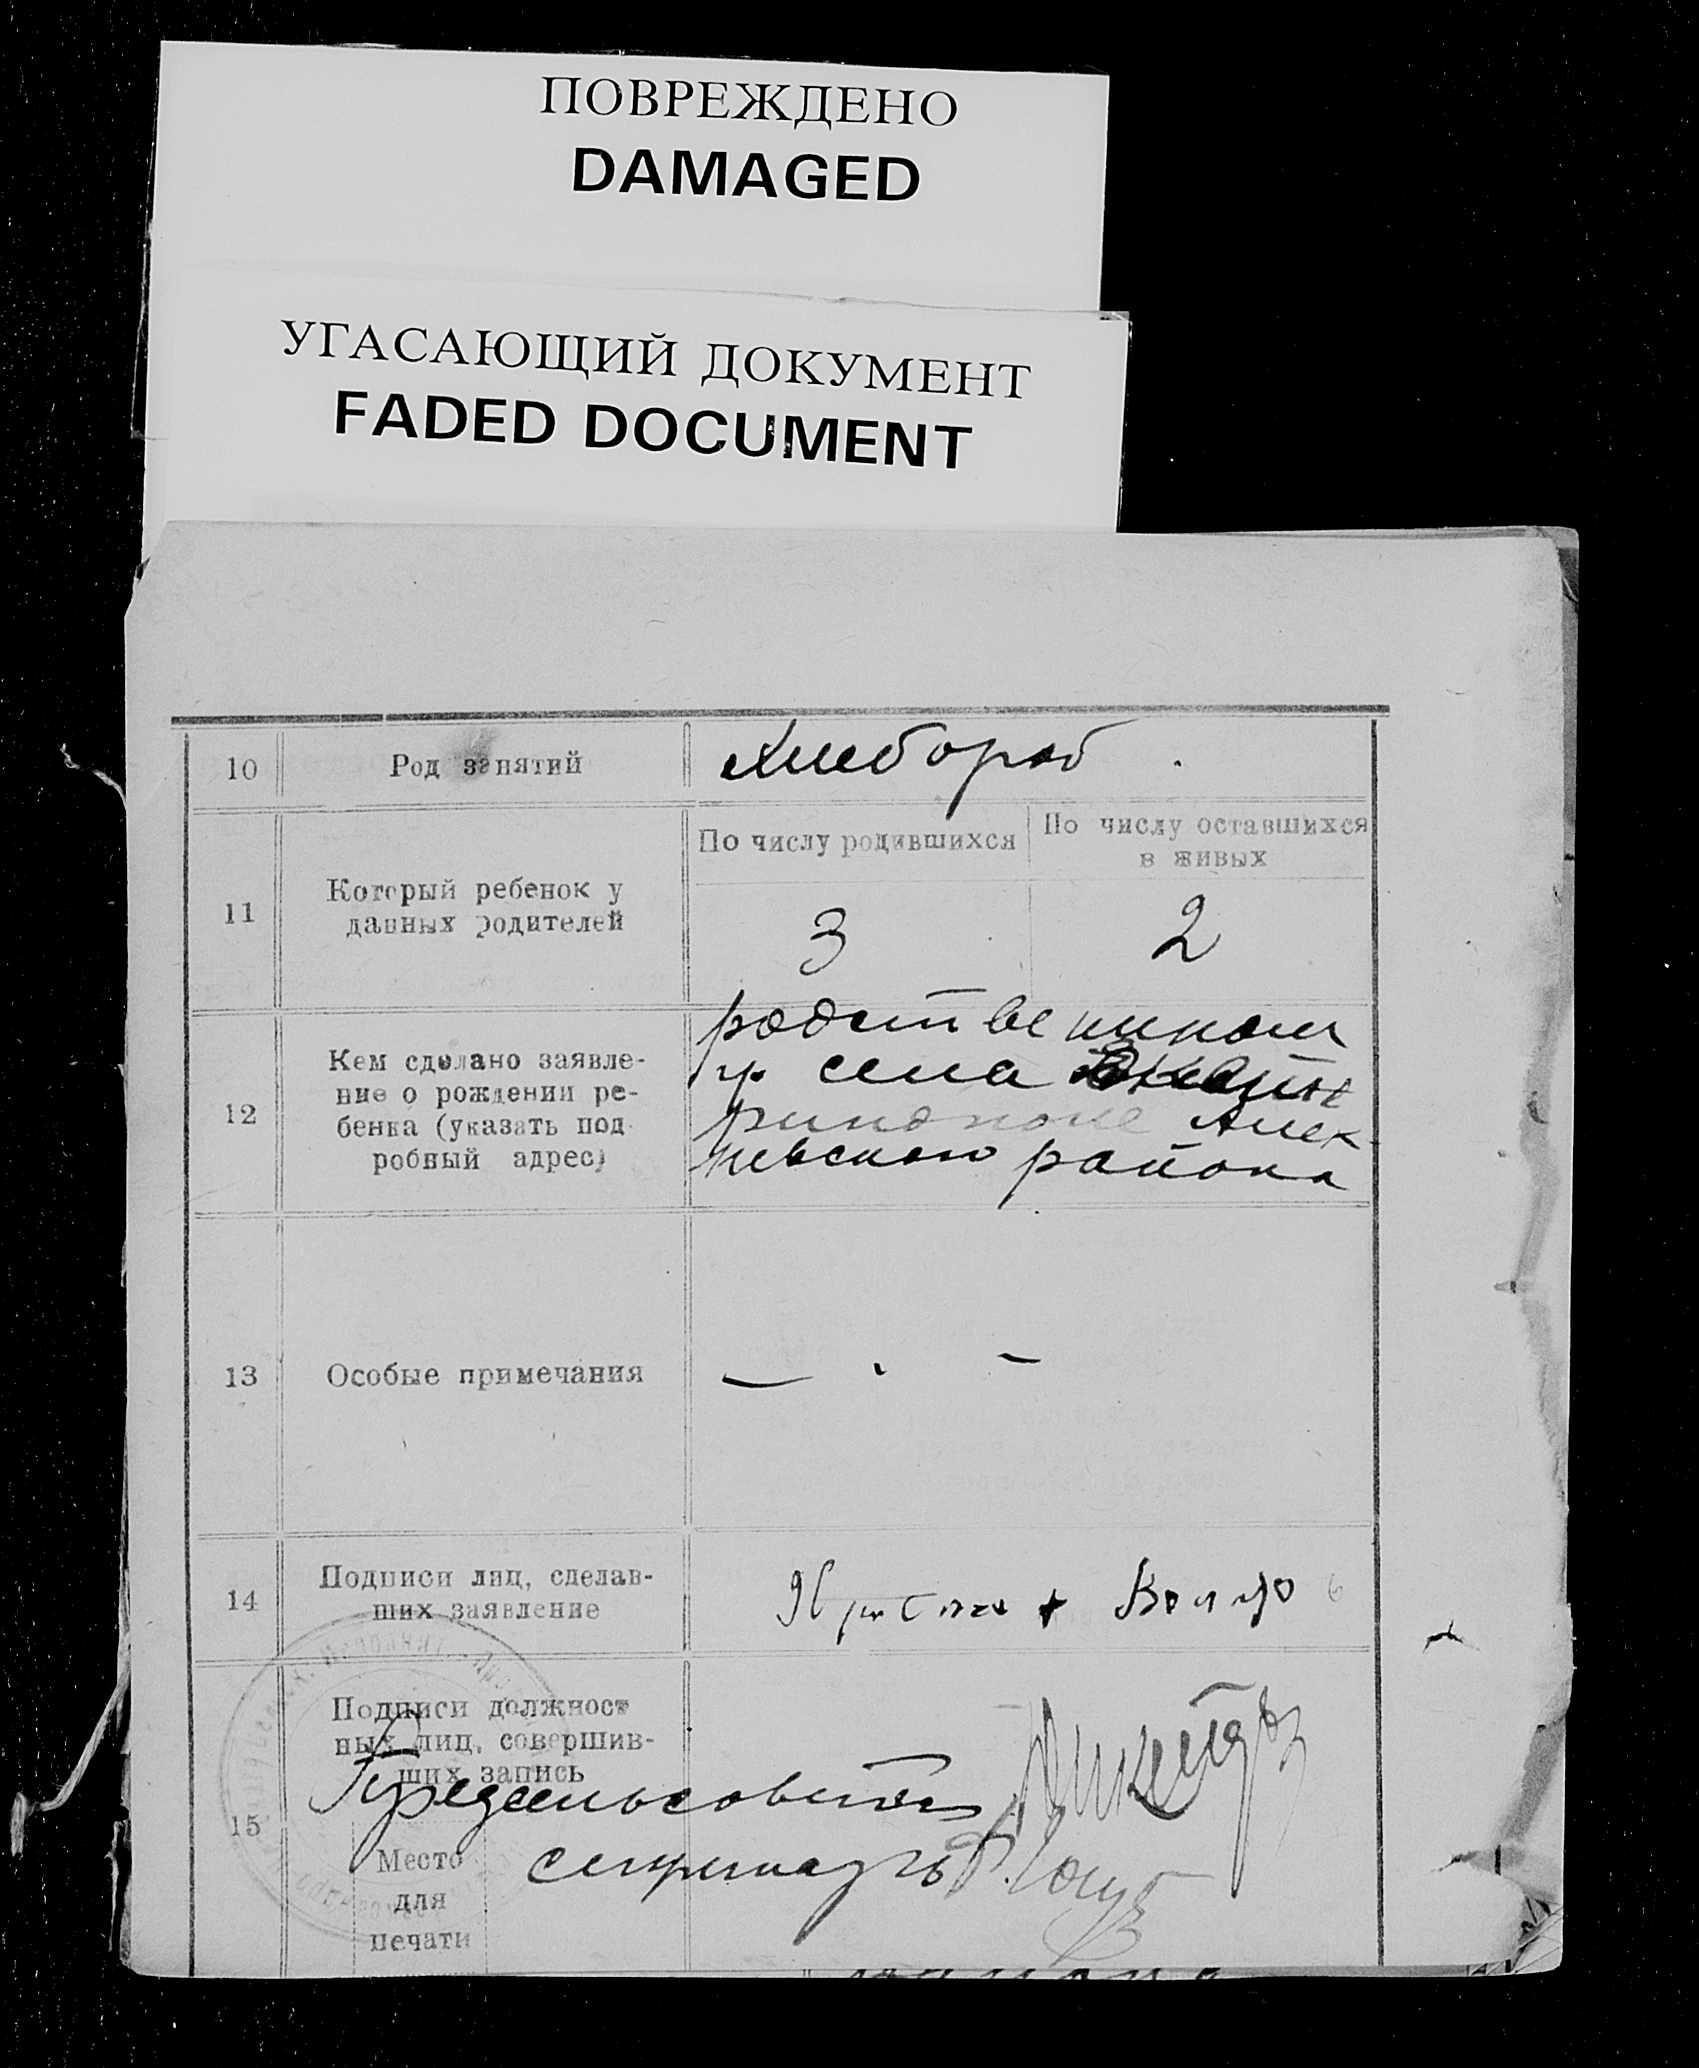 ПОВРЕЖДЕНО
DAMAGED
УГАСАЮЩИЙ ДОКУМЕНТ
FADED DOCUMENT
10 Род занятий Хлебороб
11 Который ребенок у данных родителей
По числу родившихся
По числу оставшихся
в живых
3 2
12 Кем сделано заявле-
ние о рождении ре-
бенка (указать под
робный адрес)
родственником
гр. села
района
13 Особые примечания — -
14 Подписи лиц, сделав-
ших заявление
15 Подписи должност
ных лиц, совершив-
ших запись
Предсельсовета
секретарь
Место
для
печати